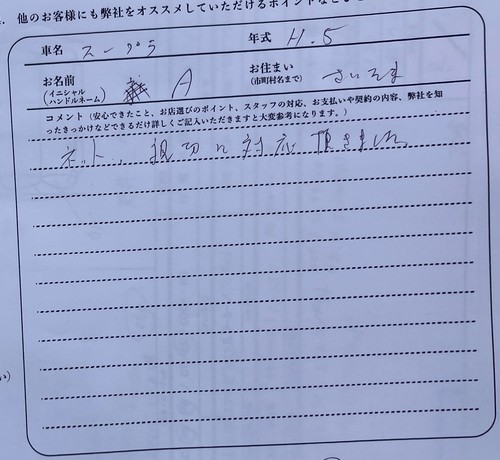 他のお客様にも弊社をオススメしていただけるポイントなど
車名 スープラ 年式 H.5
お名前 (イニシャル ハンドルネーム) A お住まい (市町村名まで) さいたま
コメント(安心できたこと、お店選びのポイント、スタッフの対応、お支払いや契約の内容、弊社を知
ったきっかけなどできるだけ詳しくご記入いただきますと大変参考になります。)
ネット、、親切に対応頂きました。
い)